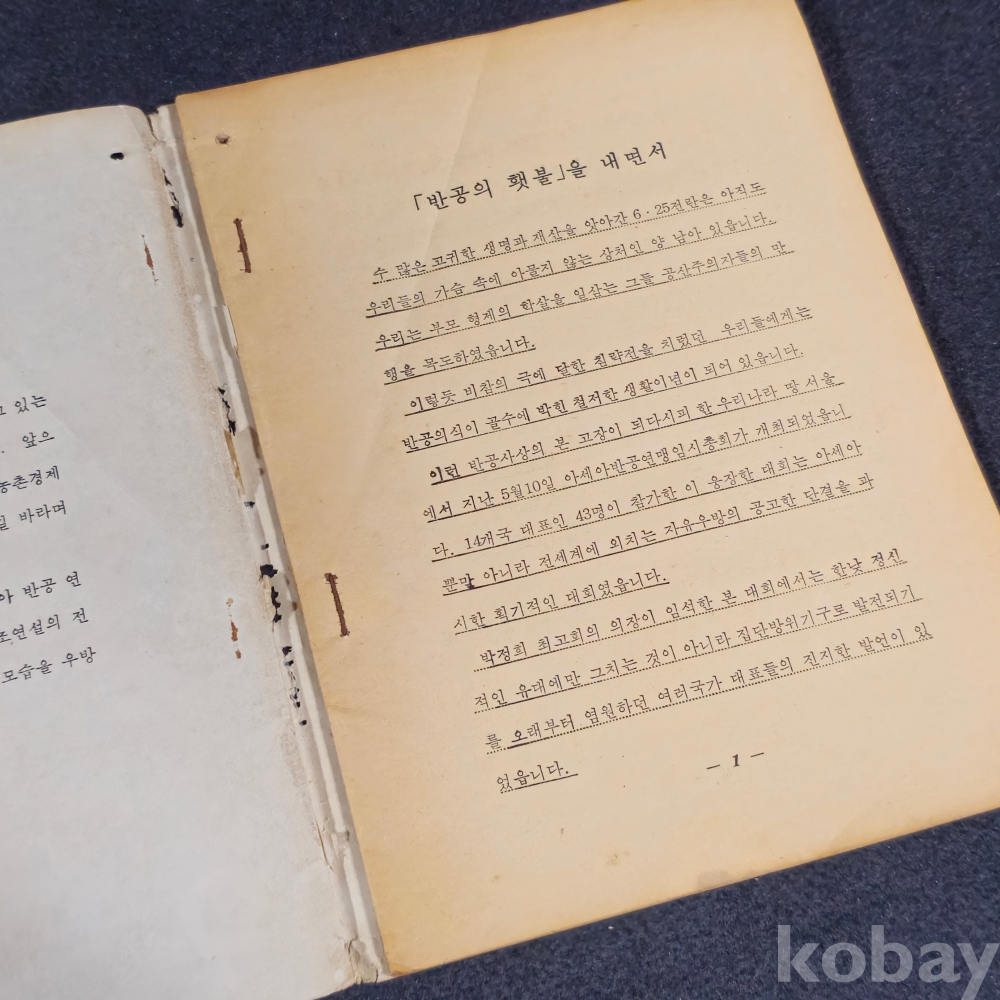 고 있는
. 앞으
농촌경제
일 바라며
아 반공 연
조연설의 전
모습을 우방
「반공의 횃불」을 내면서
수 많은 고귀한 생명과 재산을 앗아간 6·25전란은 아직도
우리들의 가슴 속에 아물지 않는 상처인 양 남아 있읍니다.
우리는 부모 형제의 학살을 일삼는 그들 공산주의자들의 만
행을 목도하였읍니다.
이렇듯 비참의 극에 달한 침략전을 치렀던 우리들에게는
반공의식이 골수에 박힌 철저한 생활이념이 되어 있읍니다.
이런 반공사상의 본 고장이 되다시피 한 우리나라 땅 서울
에서 지난 5월10일 아세아반공연맹임시총회가 개최되었읍니
다. 14개국 대표인 43명이 참가한 이 웅장한 대회는 아세아
뿐만 아니라 전세계에 외치는 자유우방의 공고한 단결을 과
시한 획기적인 대회였읍니다.
박정희 최고회의 의장이 임석한 본 대회에서는 한낯 정신
적인 유대에만 그치는 것이 아니라 집단방위기구로 발전되기
를 오래부터 염원하던 여러국가 대표들의 진지한 발언이 있
었읍니다.
— 1 —
kobay